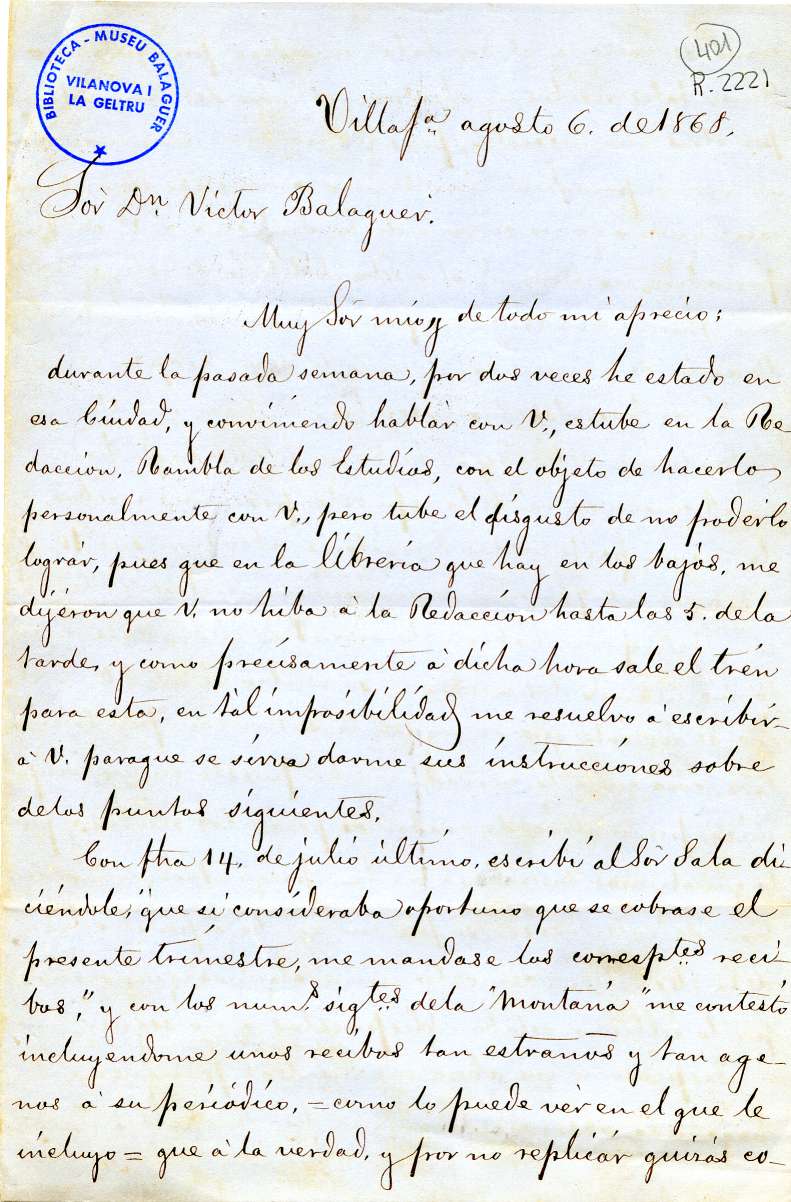 BIBLIOTECA - MUSEU BALAGUER
VILANOVA I
LA GELTRU
401
R. 2221
Villafª agosto 6. de 1868.
Sor Dn. Víctor Balaguer.
Muy Sòr mio, y de todo mi aprecio;
durante la pasada semana, por dos veces he estado en
esa Ciudad, y conviniendo hablàr con V., estube en la Re
daccion, Rambla de los Estudios, con el objeto de hacerlo
personalmente con V., pero tube el disgusto de no poderlo
lograr, pues que en la librería que hay en los bajòs, me
dijéron que V. no hiba à la Redaccion hasta las 5. de la
tarde, y como precisamente à dicha hora sale el trén
para esta, en tàl imposibilidad me resuelvo à escribir-
à V. paraque se sirva darme sus instrucciónes sobre
delos puntos siguientes.
Con fha 14. de julio último, escribí al Sòr Sala di-
ciéndole, "que si consideraba oportuno que se cobrase el
presente trimestre, me mandase los correspt.es reci-
bos," y con los num.s sigtes. dela "Montaña" me contestó
incluyendome unos recibos tan estraños y tan age-
nos à su periódico, = como lo puede vér en el que le
incluyo = que à la verdad, y por no replicár quizás co-